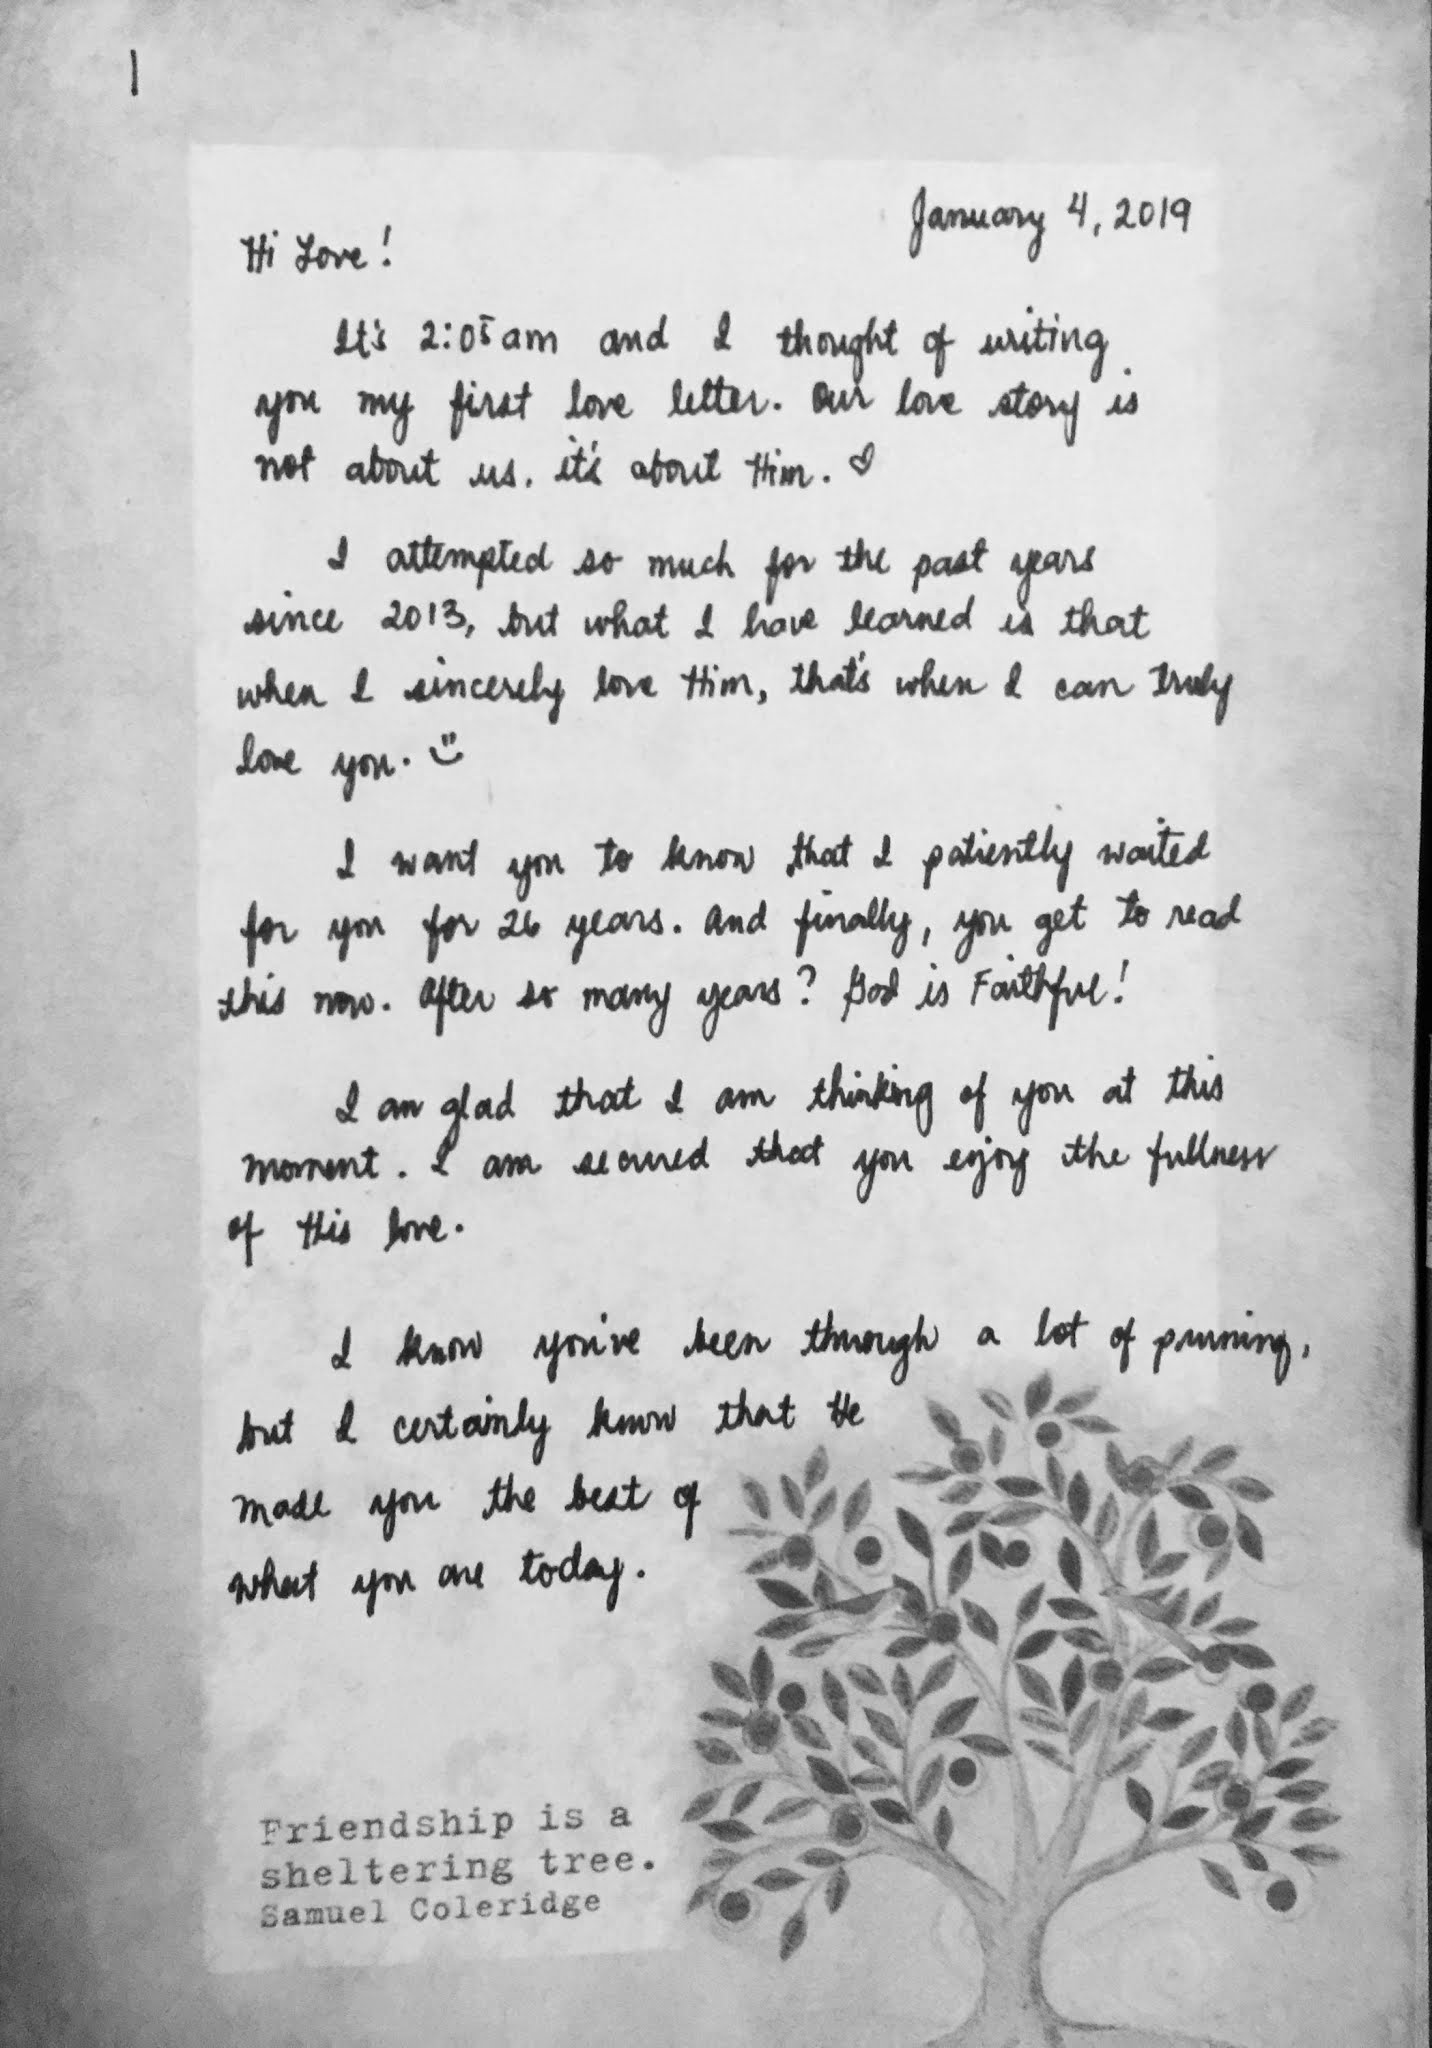 1
January 4, 2019
Hi Love!
It's 2:05am and I thought of writing
you my first love letter. Our love story is
not about us. it's about Him. ♡
I attempted so much for the past years
since 2013, but what I have learned is that
when I sincerely love Him, that's when I can truly
love you. ü
I want you to know that I patiently waited
for you for 26 years. And finally, you get to read
this now. After so many years? God is Faithful!
I am glad that I am thinking of you at this
moment. I am secured that you enjoy the fullness
of His love.
I know you've been through a lot of pruning,
but I certainly know that He
made you the best of
what you are today.
Friendship is a
sheltering tree.
Samuel Coleridge